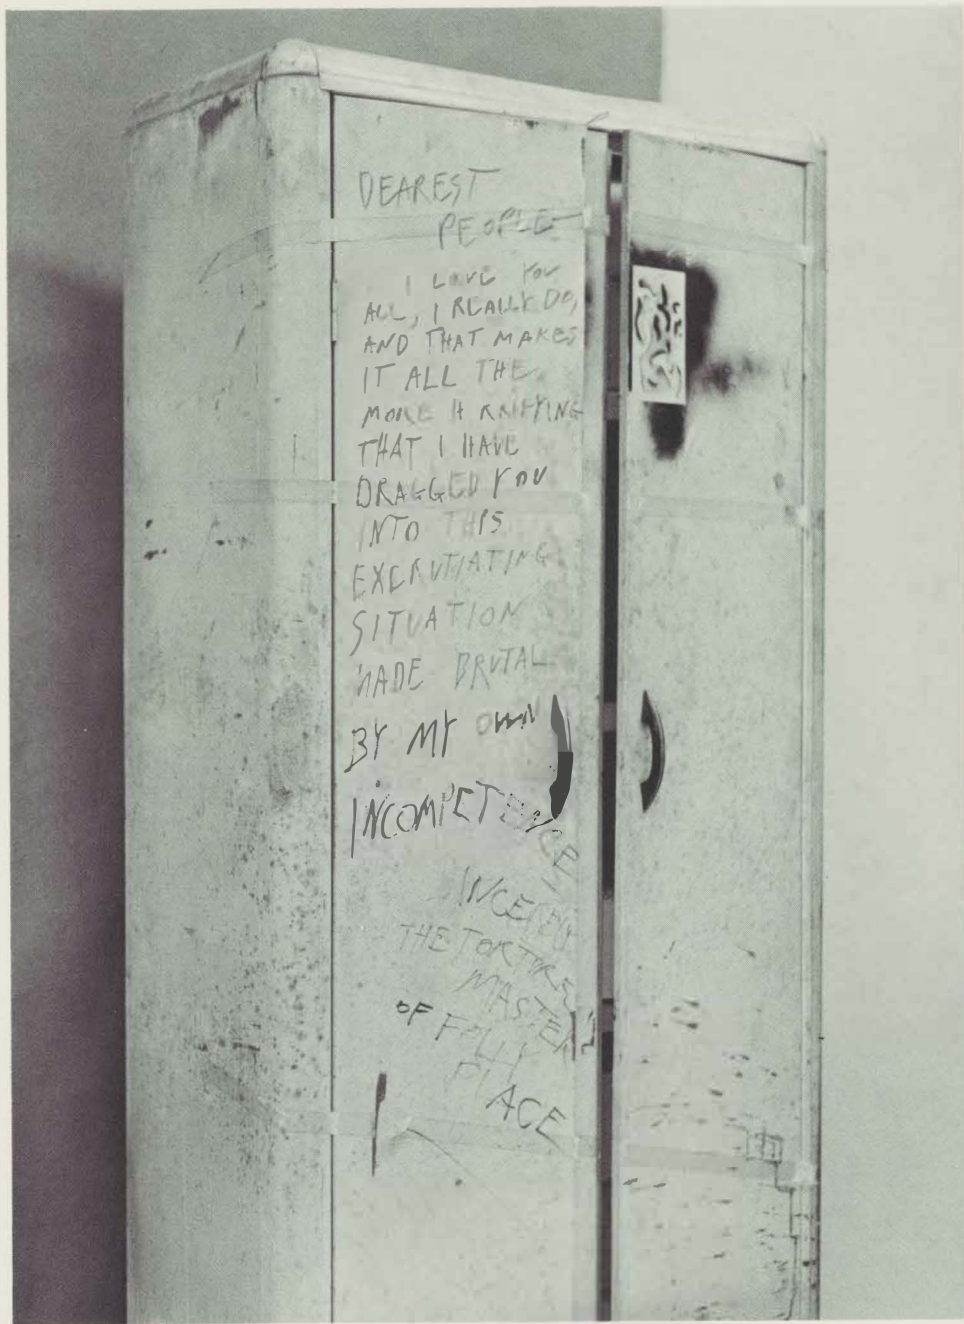 DEAREST
PEOPLE
I LOVE YOU
ALL, I REALLY DO,
AND THAT MAKES
IT ALL THE
MORE
THAT I HAVE
DRAGGED YOU
INTO THIS
EXCRUTIATING
SITUATION
MADE BRUTAL
BY MY OWN
INCOMPETENCE
THE TORTURE
MASTER
OF FOLLY
PLACE